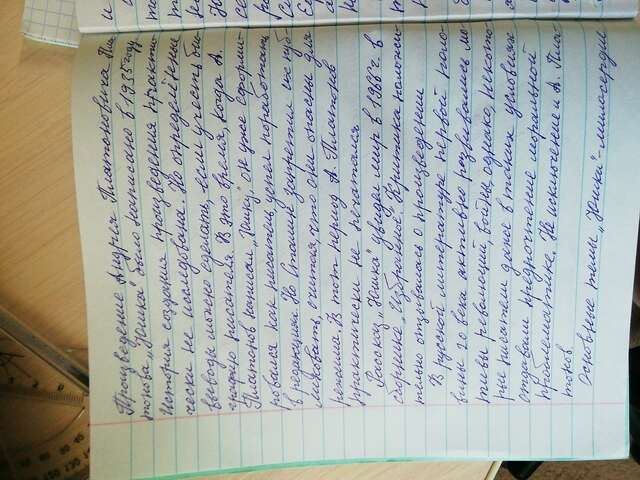 Произведение Андрея Платоновича Пла-
тонова "Никита" было написано в 1935 году.
История создания произведения практи-
чески не исследована. Но определённые
выводы можно сделать, если учесть био-
графию писателя. В это время, когда А.
Платонов написал
он уже сформи-
ровался как писатель, успел поработать
в редакции. Но в то время запретили их пуб-
ликовать, считая, что они опасны для
режима. В тот период А. Платонов
практически не печатался.
Рассказ
увидел мир в 1988 г. в
сборнике Избранное. Критика положи-
тельно отозвалась о произведении.
В русской литературе первой поло-
вины 20 века активно развивались мо-
тивы революций, войны, однако, некото-
рые писатели даже в таких условиях
отдавали предпочтение моральной
проблематике. Не исключение и А. Пла-
тонов.
Основные темы
- милосердие